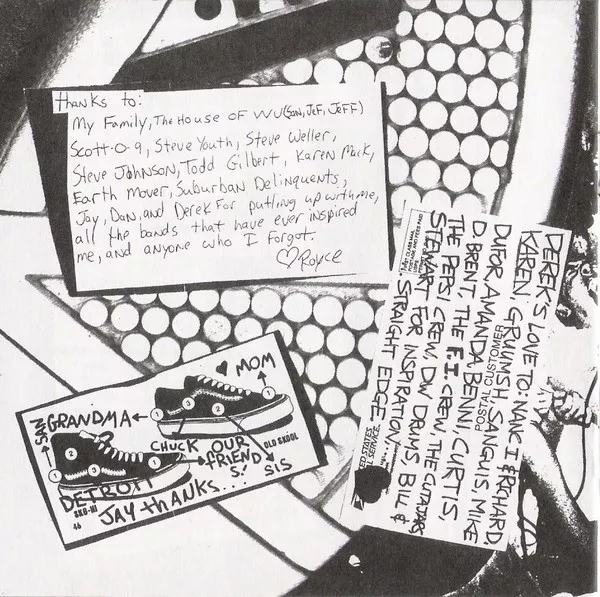 thanks to:
My Family, The House of Wu (San, Jef, Jeff)
Scott-O-9, Steve Youth, Steve Weller,
Steve Johnson, Todd Gilbert, Karen Mack,
Earth Mover, Suburban Delinquents,
Jay, Dan, and Derek For putting up with me,
all the bands that have ever inspired
me, and anyone who I forgot.
♡ Royce
DEREK'S LOVE TO: NANCI & RICHARD.
KAREN, GRUVMISH, SANGUIS, MIKE
POSTAL CUSTOMER
DUFOR, AMANDA, BENNI, CURTIS,
D. BRENT, THE F.I. CREW, THE
THE PEPSI CREW, DW DRUMS, BILL &
STEWART FOR INSPIRATION.
STRAIGHT EDGE.
FIRST CLASS MAIL
POSTAGE AND FEES PAID
USPS
ED STATES
L SERVICE
♥ MOM
1 3 2
GRANDMA
OLD SKOOL
CHUCK
OUR
FRIEND
S!
SIS
1 2 3 1
DETROIT
SK8-HI
46
JAY thanks....